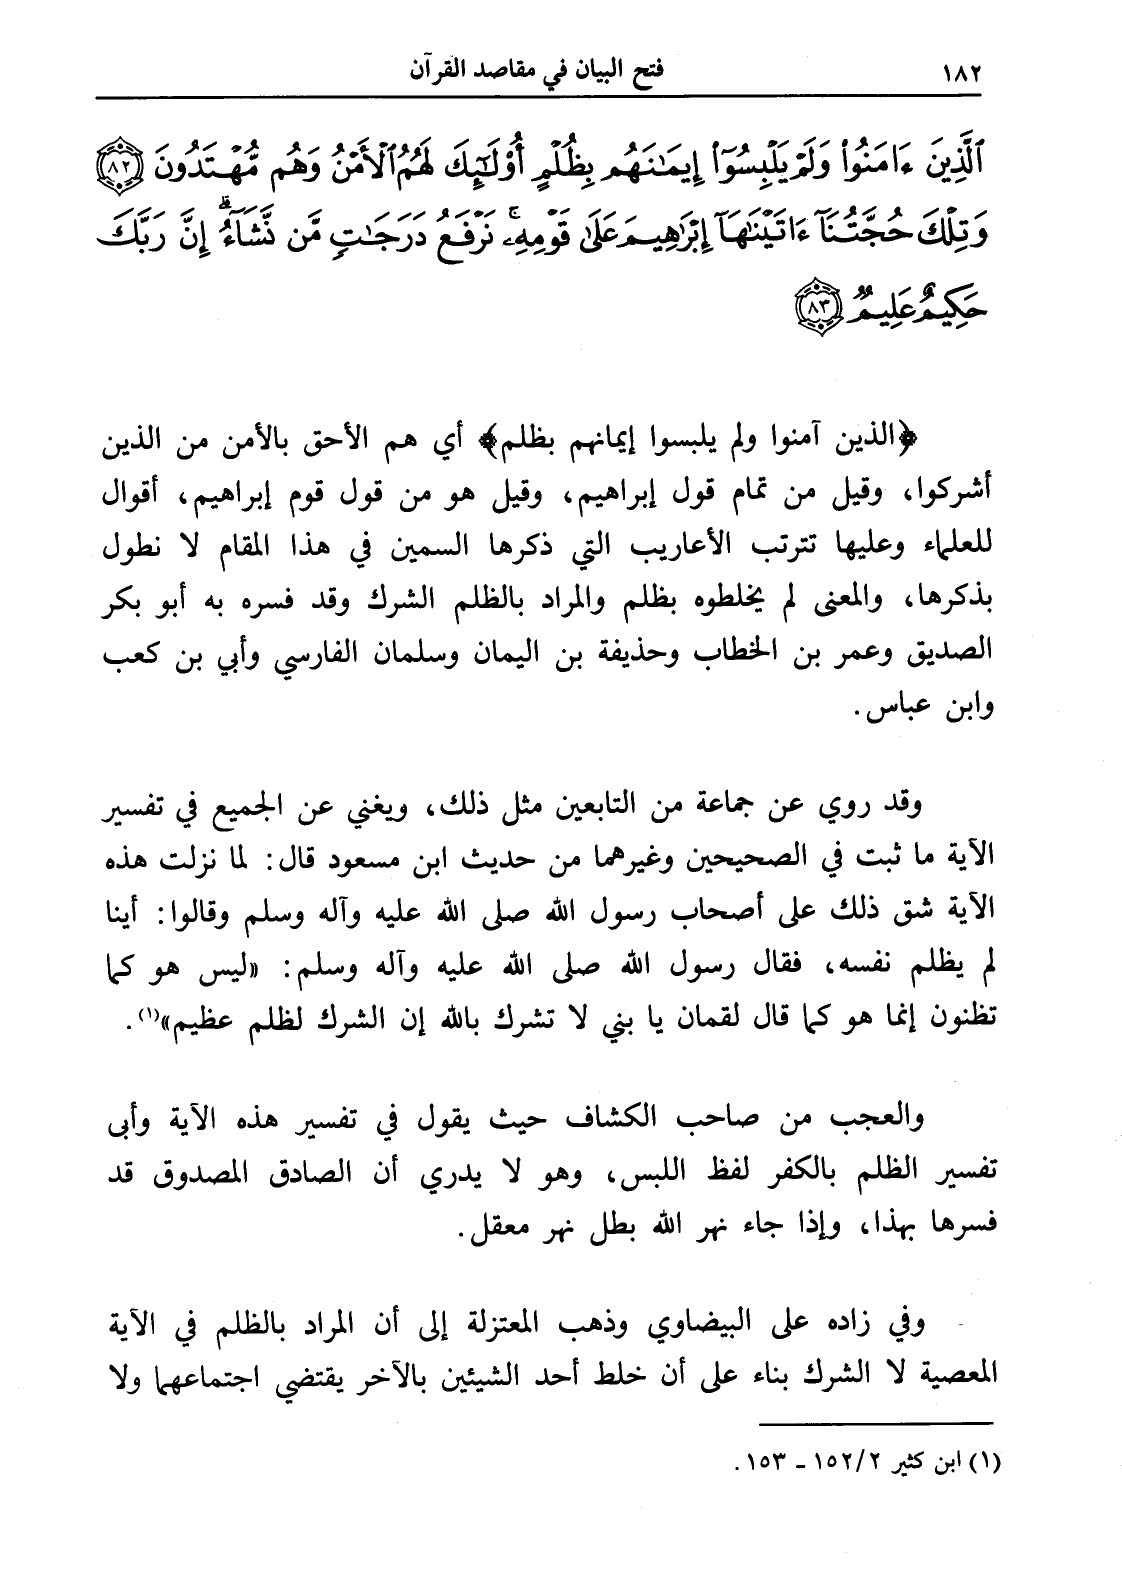 ١٨٢
فتح البيان في مقاصد القرآن
ٱلَّذِينَ ءَامَنُوا۟ وَلَمْ يَلْبِسُوٓا۟ إِيمَـٰنَهُم بِظُلْمٍ أُو۟لَـٰٓئِكَ لَهُمُ ٱلْأَمْنُ وَهُم مُّهْتَدُونَ ٨٢
وَتِلْكَ حُجَّتُنَآ ءَاتَيْنَـٰهَآ إِبْرَٰهِيمَ عَلَىٰ قَوْمِهِۦ ۚ نَرْفَعُ دَرَجَـٰتٍ مَّن نَّشَآءُ ۗ إِنَّ رَبَّكَ
حَكِيمٌ عَلِيمٌ ٨٣
﴿الذين آمنوا ولم يلبسوا إيمانهم بظلم﴾ أي هم الأحق بالأمن من الذين
أشركوا، وقيل من تمام قول إبراهيم، وقيل هو من قول قوم إبراهيم، أقوال
للعلماء وعليها تترتب الأعاريب التي ذكرها السمين في هذا المقام لا نطول
بذكرها، والمعنى لم يخلطوه بظلم والمراد بالظلم الشرك وقد فسره به أبو بكر
الصديق وعمر بن الخطاب وحذيفة بن اليمان وسلمان الفارسي وأبي بن كعب
وابن عباس.
وقد روي عن جماعة من التابعين مثل ذلك، ويغني عن الجميع في تفسير
الآية ما ثبت في الصحيحين وغيرهما من حديث ابن مسعود قال: لما نزلت هذه
الآية شق ذلك على أصحاب رسول الله صلى الله عليه وآله وسلم وقالوا: أينا
لم يظلم نفسه، فقال رسول الله صلى الله عليه وآله وسلم: «ليس هو كما
تظنون إنما هو كما قال لقمان يا بني لا تشرك بالله إن الشرك لظلم عظيم»(١).
والعجب من صاحب الكشاف حيث يقول في تفسير هذه الآية وأبى
تفسير الظلم بالكفر لفظ اللبس، وهو لا يدري أن الصادق المصدوق قد
فسرها بهذا، وإذا جاء نهر الله بطل نهر معقل.
وفي زاده على البيضاوي وذهب المعتزلة إلى أن المراد بالظلم في الآية
المعصية لا الشرك بناء على أن خلط أحد الشيئين بالآخر يقتضي اجتماعهما ولا
(١) ابن كثير ١٥٢/٢ ـ ١٥٣.